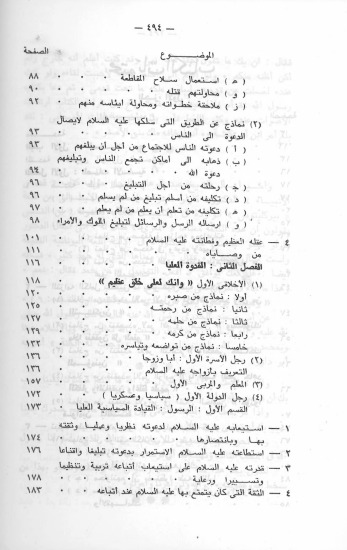 — ٤٩٤ —
الموضــــوع الصفحة
( هـ ) استعمال سلاح المقاطعة ٨٨
( و ) محاولتهم قتله ٩٠
( ز ) ملاحقة خطواته ومحاولة ايئاسه منهم ٩٢
(٢) نماذج عن الطريق التى سلكها عليه السلام لايصال
الدعوة الى الناس ٩٣
( أ ) دعوته الناس للاجتماع من أجل أن يبلغهم ٩٣
( ب ) ذهابه الى أماكن تجمع الناس وتبليغهم
دعوة الله ٩٤
( جـ ) رحلته من أجل التبليغ ٩٦
( د ) تكليفه من أسلم تبليغ من لم يسلم ٩٦
( هـ ) تكليفه من تعلم أن يعلم من لم يعلم ٩٧
( و ) ارساله الرسل والرسائل لتبليغ الملوك والأمراء ٩٨
٤ — عقله العظيم وفطانته عليه السلام ١٠١
من وصاياه ١١١
الفصل الثانى : القدوة العليا ١١٦
(١) الأخلاقى الأول « وانك لعلى خلق عظيم » ١١٨
أولا : نماذج من صبره ١٢٠
ثانيا : نماذج من رحمته ١٢٥
ثالثا : نماذج من حلمه ١٢٧
رابعا : نماذج من كرمه ١٢٩
خامسا : نماذج من تواضعه وتياسره ١٣٢
(٢) رجل الأسرة الأول : أبا وزوجا ١٣٦
التعريف بأزواجه عليه السلام ١٣٦
(٣) المعلم والمربى الأول ١٥٧
(٤) رجل الدولة الأول ( سياسيا وعسكريا ) ١٧٢
القسم الأول : الرسول : القيادة السياسية العليا ١٧٣
١ — استيعابه عليه السلام لدعوته نظريا وعمليا وثقته
بها وبانتصارها ١٧٤
٢ — استطاعته عليه السلام الاستمرار بدعوته تبليغا واقناعا ١٧٦
٣ — قدرته عليه السلام على استيعاب أتباعه تربية وتنظيما
وتسييرا ورعاية ١٧٨
٤ — الثقة التى كان يتمتع بها عليه السلام عند أتباعه ١٨٣